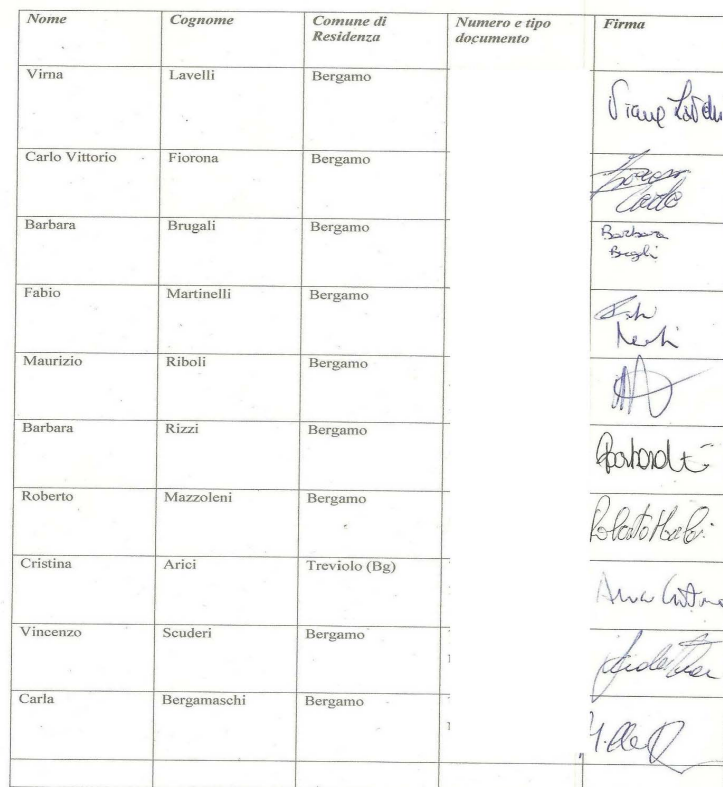 Nome Cognome Comune di Residenza Numero e tipo documento Firma
Virna Lavelli Bergamo
Carlo Vittorio Fiorona Bergamo
Barbara Brugali Bergamo Barbara
Fabio Martinelli Bergamo
Maurizio Riboli Bergamo
Barbara Rizzi Bergamo
Roberto Mazzoleni Bergamo
Cristina Arici Treviolo (Bg)
Vincenzo Scuderi Bergamo
Carla Bergamaschi Bergamo